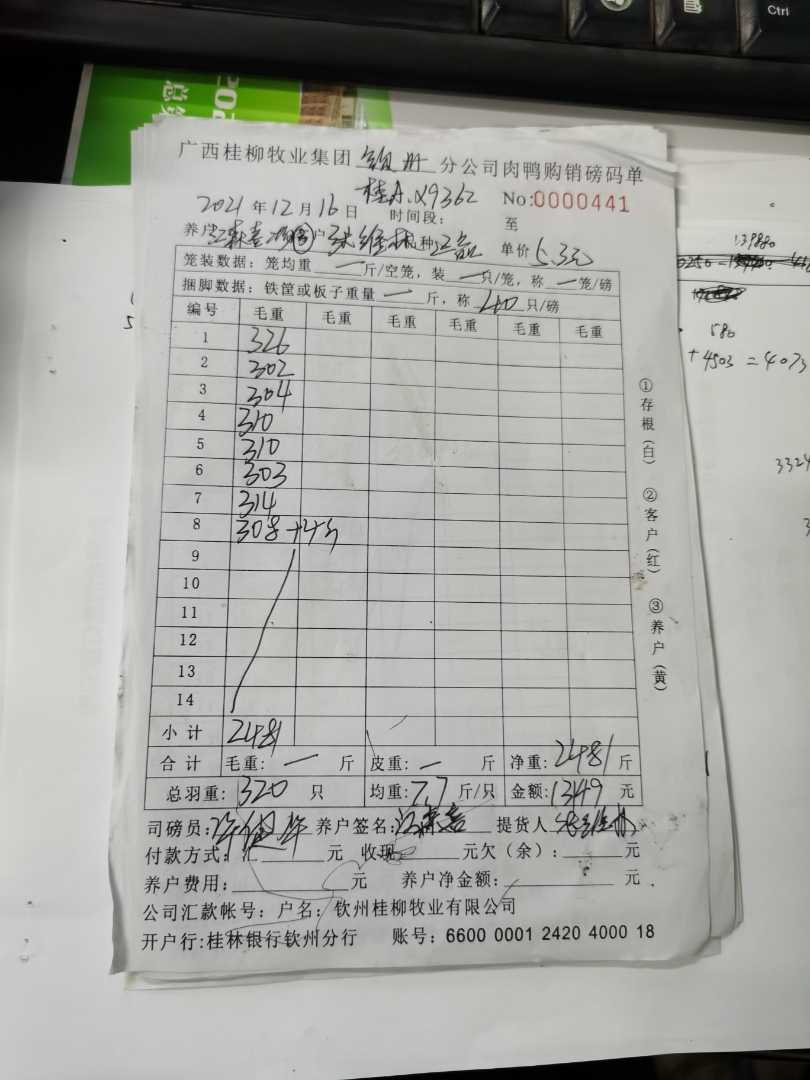 Ctrl
广西桂柳牧业集团 钦州 分公司肉鸭购销磅码单
桂A·Q9362 No:0000441
2021 年 12 月 16 日 时间段: 至
养户: 江森喜 客户 张维林 种 单价 5.3元
笼装数据: 笼均重 一 斤/空笼, 装 一 只/笼, 称 一 笼/磅
捆脚数据: 铁筐或板子重量 一 斤, 称 40 只/磅
编号 毛重 毛重 毛重 毛重 毛重 毛重
1 326
2 302
3 304
4 310
5 310
6 303
7 314
8 308+4
9
10
11
12
13
14
小计 2481
合计 毛重: 一 斤 皮重: 一 斤 净重: 2481 斤
总羽重: 320 只 均重: 7.7 斤/只 金额: 13149 元
司磅员: 养户签名: 江森喜 提货人 张维林
付款方式: 汇 元 收现 元欠(余): 元
养户费用: 元 养户净金额: 元
公司汇款帐号: 户名: 钦州桂柳牧业有限公司
开户行:桂林银行钦州分行 账号: 6600 0001 2420 4000 18
①存根(白) ②客户(红) ③养户(黄)
139880
580
+4503=4073
3324